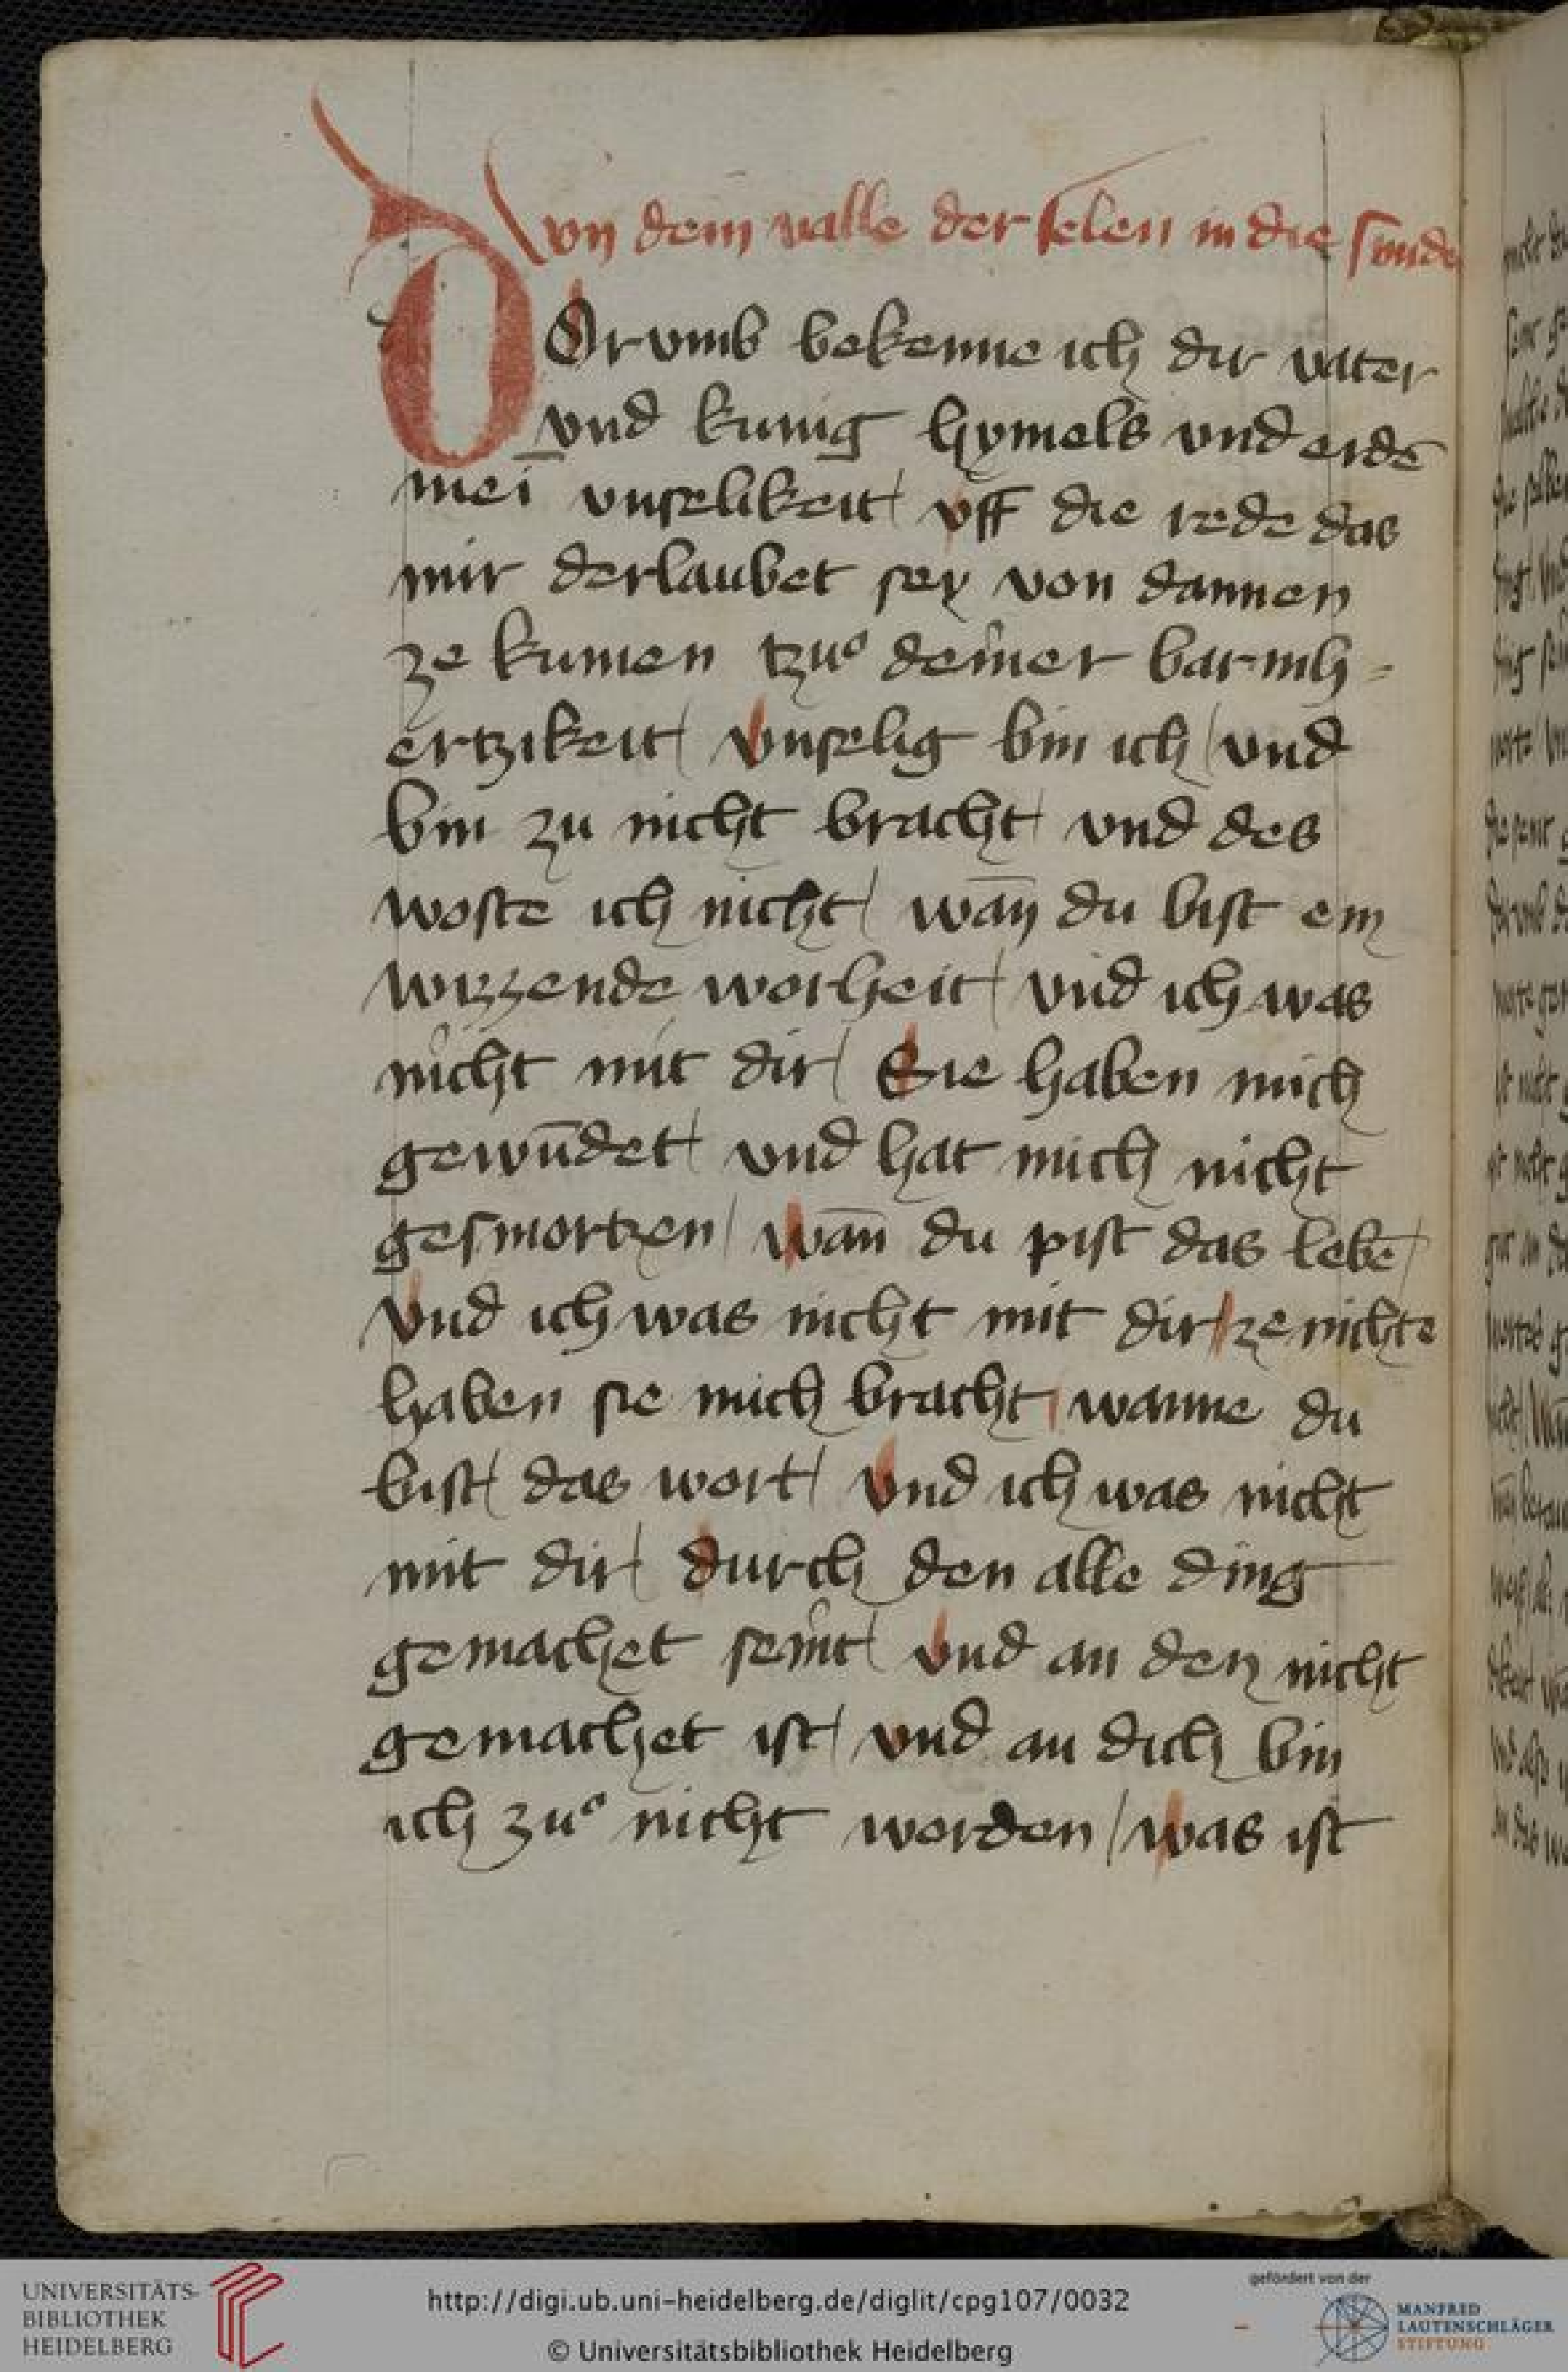 Von dem valle der selen in die sunde
DOrvmb bekenne ich dir vater
vnd kunig hymels vnd erdē
mei vnselikeit / vff die rede das
mir derlaubet sey von dannen
ze kumen tzuͦ deiner barmh=
ertzikeit / vnselig bin ich / vnd
bin zu nicht bracht / vnd des
woste ich nicht / wan̄ du bist ein
wizzende worheit / vnd ich was
nicht mit dir / Sie haben mich
gewūdet / vnd hat mich nicht
gesmortzen / wan̄ du pist das lebē /
vnd ich was nicht mit dir / ze nichte
haben sie mich bracht / wanne du
bist / das wort / vnd ich was nicht
mit dir / durch den alle ding
gemachet seint / vnd an den nicht
gemachet ist / vnd an dich bin
ich zuͦ nicht worden / was ist
UNIVERSITÄTS-
BIBLIOTHEK
HEIDELBERG
http://digi.ub.uni-heidelberg.de/diglit/cpg107/0032
© Universitätsbibliothek Heidelberg
gefördert von der
MANFRED
LAUTENSCHLÄGER
STIFTUNG